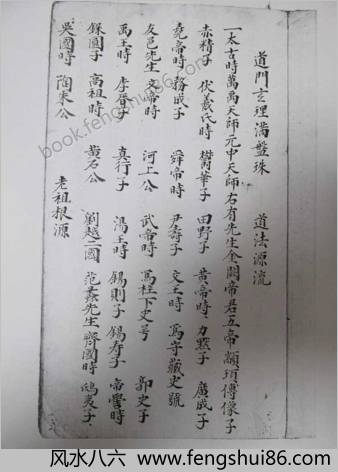 道門玄理滿盤珠 道法源流
一太古時萬禹天師元中天師右有先生金闕帝君五帝顓頊傳像子
赤精子 伏羲氏時 欝華子 田野子 黃帝時 力黙子 廣成子
堯帝時 務成子 舜帝時 尹壽子 文王時 爲守藏史號
友邑先生 文帝時 河上公 武帝時 爲柱下史号 郭史子
禹王時 李胥子 真行子 湯王時 錫則子 錫寿子 帝嚳時
錄圖子 高祖時 黃石公 劉越二國 范蠡先生 齊國時 鴟夷子
吳國時 陶朱公 老祖根源
book.fengshui86.com
风水八六 www.fengshui86.com